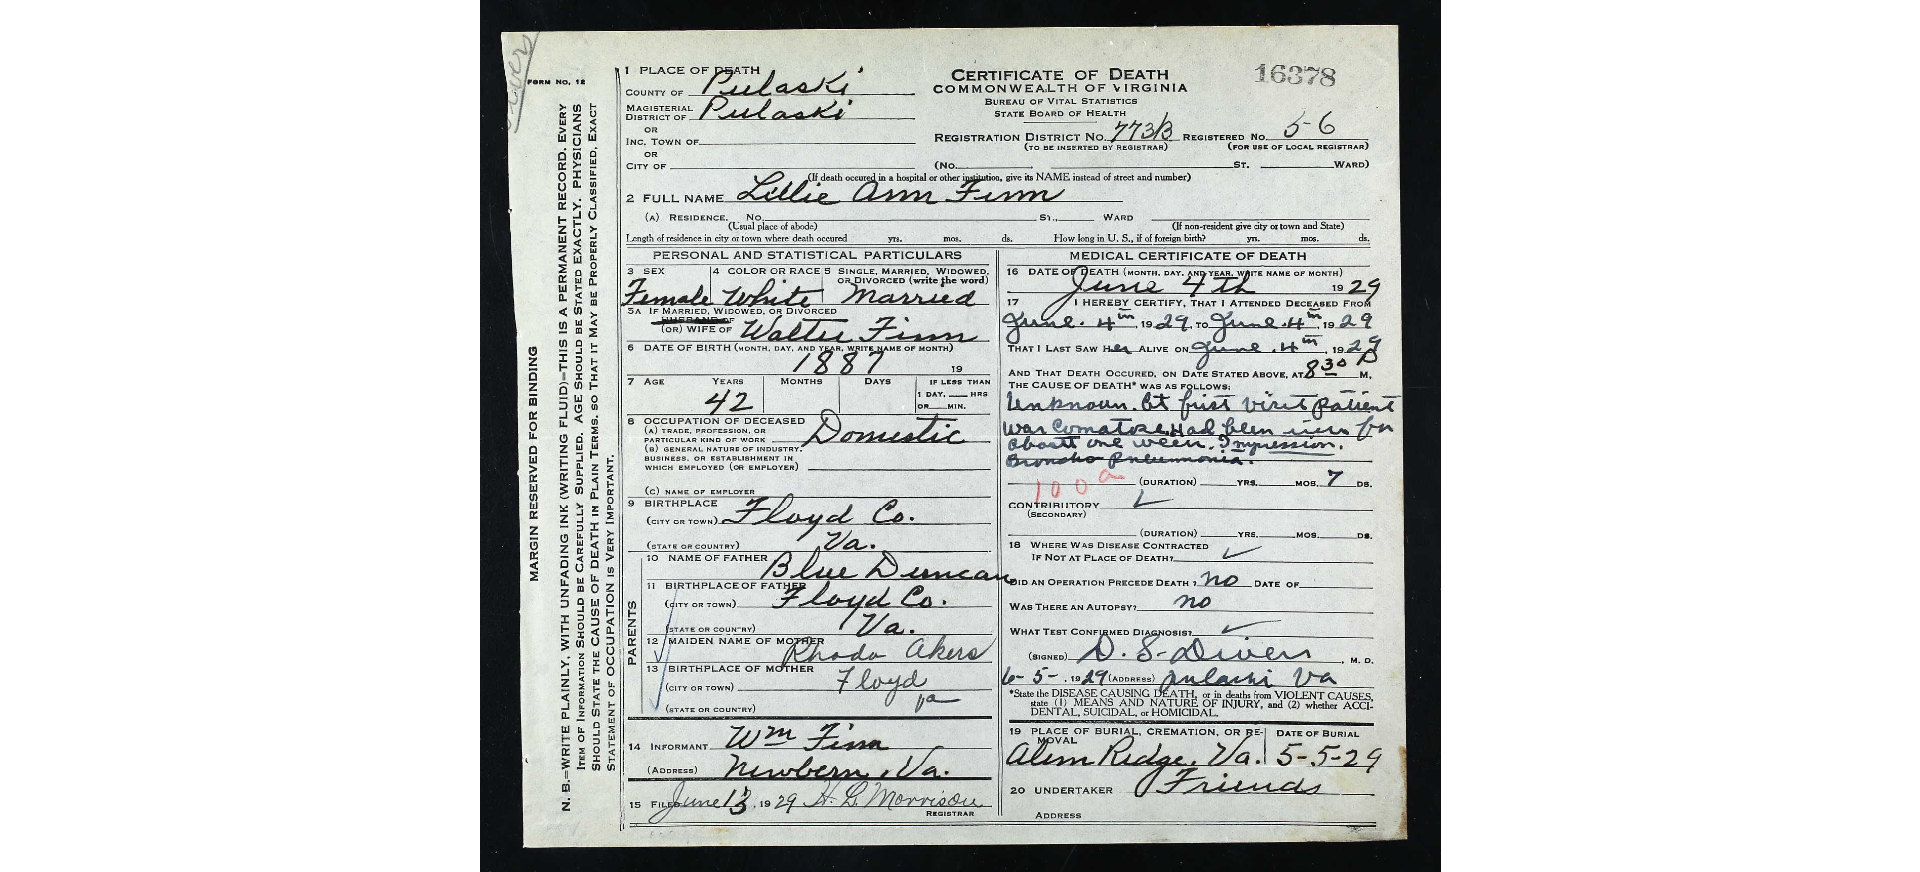 16378
FORM NO. 12
MARGIN RESERVED FOR BINDING
N. B.=WRITE PLAINLY, WITH UNFADING INK (WRITING FLUID)=THIS IS A PERMANENT RECORD. EVERY
ITEM OF INFORMATION SHOULD BE CAREFULLY SUPPLIED. AGE SHOULD BE STATED EXACTLY. PHYSICIANS
SHOULD STATE THE CAUSE OF DEATH IN PLAIN TERMS, SO THAT IT MAY BE PROPERLY CLASSIFIED. EXACT
STATEMENT OF OCCUPATION IS VERY IMPORTANT.
CERTIFICATE OF DEATH
COMMONWEALTH OF VIRGINIA
BUREAU OF VITAL STATISTICS
STATE BOARD OF HEALTH
1 PLACE OF DEATH
COUNTY OF Pulaski
MAGISTERIAL DISTRICT OF Pulaski
OR
INC. TOWN OF
OR
CITY OF
REGISTRATION DISTRICT No. 773B REGISTERED No. 56
(TO BE INSERTED BY REGISTRAR) (FOR USE OF LOCAL REGISTRAR)
(No. ST. WARD)
(If death occured in a hospital or other institution, give its NAME instead of street and number)
2 FULL NAME Lillie Ann Finn
(A) RESIDENCE. No. ST., WARD
(Usual place of abode) (If non-resident give city or town and State)
Length of residence in city or town where death occured yrs. mos. ds. How long in U. S., if of foreign birth? yrs. mos. ds.
PERSONAL AND STATISTICAL PARTICULARS
3 SEX 4 COLOR OR RACE 5 SINGLE, MARRIED, WIDOWED, OR DIVORCED (write the word)
Female White Married
5A IF MARRIED, WIDOWED, OR DIVORCED
HUSBAND OF
(OR) WIFE OF Walter Finn
6 DATE OF BIRTH (MONTH, DAY, AND YEAR, WRITE NAME OF MONTH)
1887 19
7 AGE YEARS MONTHS DAYS IF LESS THAN
1 DAY, HRS
OR MIN.
42
8 OCCUPATION OF DECEASED
(A) TRADE, PROFESSION, OR
PARTICULAR KIND OF WORK Domestic
(B) GENERAL NATURE OF INDUSTRY,
BUSINESS, OR ESTABLISHMENT IN
WHICH EMPLOYED (OR EMPLOYER)
(C) NAME OF EMPLOYER
9 BIRTHPLACE
(CITY OR TOWN) Floyd Co.
(STATE OR COUNTRY) Va.
PARENTS
10 NAME OF FATHER Blue Duncan
11 BIRTHPLACE OF FATHER
(CITY OR TOWN) Floyd Co.
(STATE OR COUNTRY) Va.
12 MAIDEN NAME OF MOTHER
Rhoda Akers
13 BIRTHPLACE OF MOTHER
(CITY OR TOWN) Floyd
(STATE OR COUNTRY) Va
14 INFORMANT Wm Finn
(ADDRESS) Newbern, Va.
15 FILED June 13, 1929 H. L. Morrison
REGISTRAR
MEDICAL CERTIFICATE OF DEATH
16 DATE OF DEATH (MONTH, DAY, AND YEAR, WRITE NAME OF MONTH)
June 4th 1929
17 I HEREBY CERTIFY, THAT I ATTENDED DECEASED FROM
June. 4th, 1929, TO June. 4th, 1929
THAT I LAST SAW Her ALIVE ON June. 4th, 1929
AND THAT DEATH OCCURED, ON DATE STATED ABOVE, AT 8 30 P M.
THE CAUSE OF DEATH* WAS AS FOLLOWS:
Unknown. At first visit patient
was comatose. Had been for
about one week. Impression.
Broncho pneumonia.
100a (DURATION) YRS. MOS. 7 DS.
CONTRIBUTORY
(SECONDARY)
(DURATION) YRS. MOS. DS.
18 WHERE WAS DISEASE CONTRACTED
IF NOT AT PLACE OF DEATH?
DID AN OPERATION PRECEDE DEATH? no DATE OF
WAS THERE AN AUTOPSY? no
WHAT TEST CONFIRMED DIAGNOSIS?
(SIGNED) D. S. Divers, M. D.
6-5-, 1929 (ADDRESS) Pulaski Va
*State the DISEASE CAUSING DEATH, or in deaths from VIOLENT CAUSES,
state (1) MEANS AND NATURE OF INJURY, and (2) whether ACCI-
DENTAL, SUICIDAL, or HOMICIDAL.
19 PLACE OF BURIAL, CREMATION, OR RE-MOVAL DATE OF BURIAL
Alum Ridge, Va. 5-5-29
20 UNDERTAKER Friends
ADDRESS